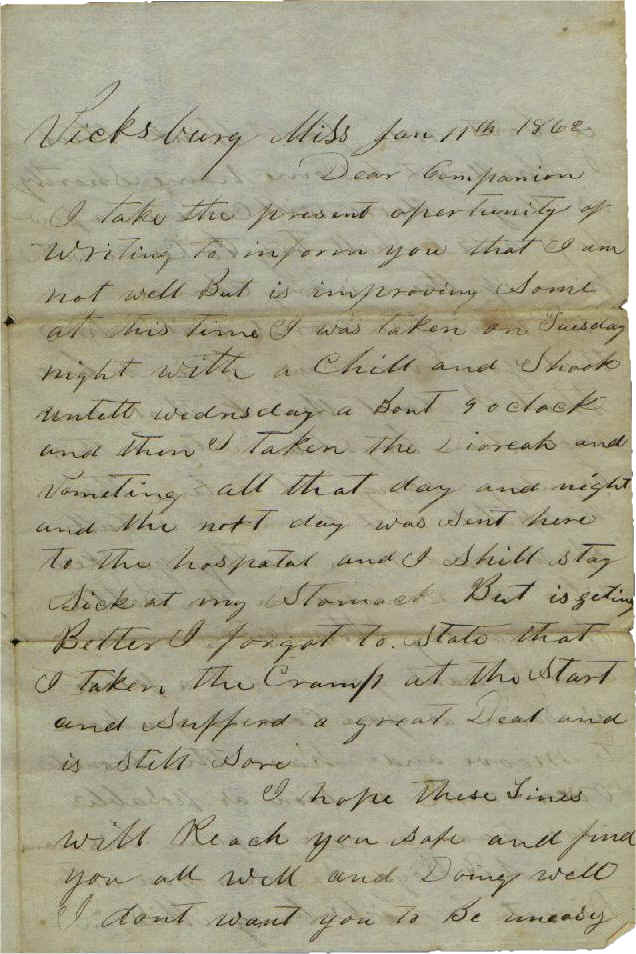 Vicksburg Miss Jan 11th 186
Dear Companion
I take the present opertunity of
Writing to inform you that I am
not well But is improving Some
at this time I was taken on Tuesday
night with a Chill and Shook
untell wednsday a Bout 9 oclock
and then I taken the Dioreah and
Vometing all that day and night
and the next day was Sent here
to the hospatal and I Still stay
Sick at my Stomach But is geting
Better I forgot to State that
I taken the Cramp at the Start
and Sufferd a great Deal and
is still Sore
I hope these Lines
will Reach you safe and find
you all well and Doing well
I dont want you to Be uneasy